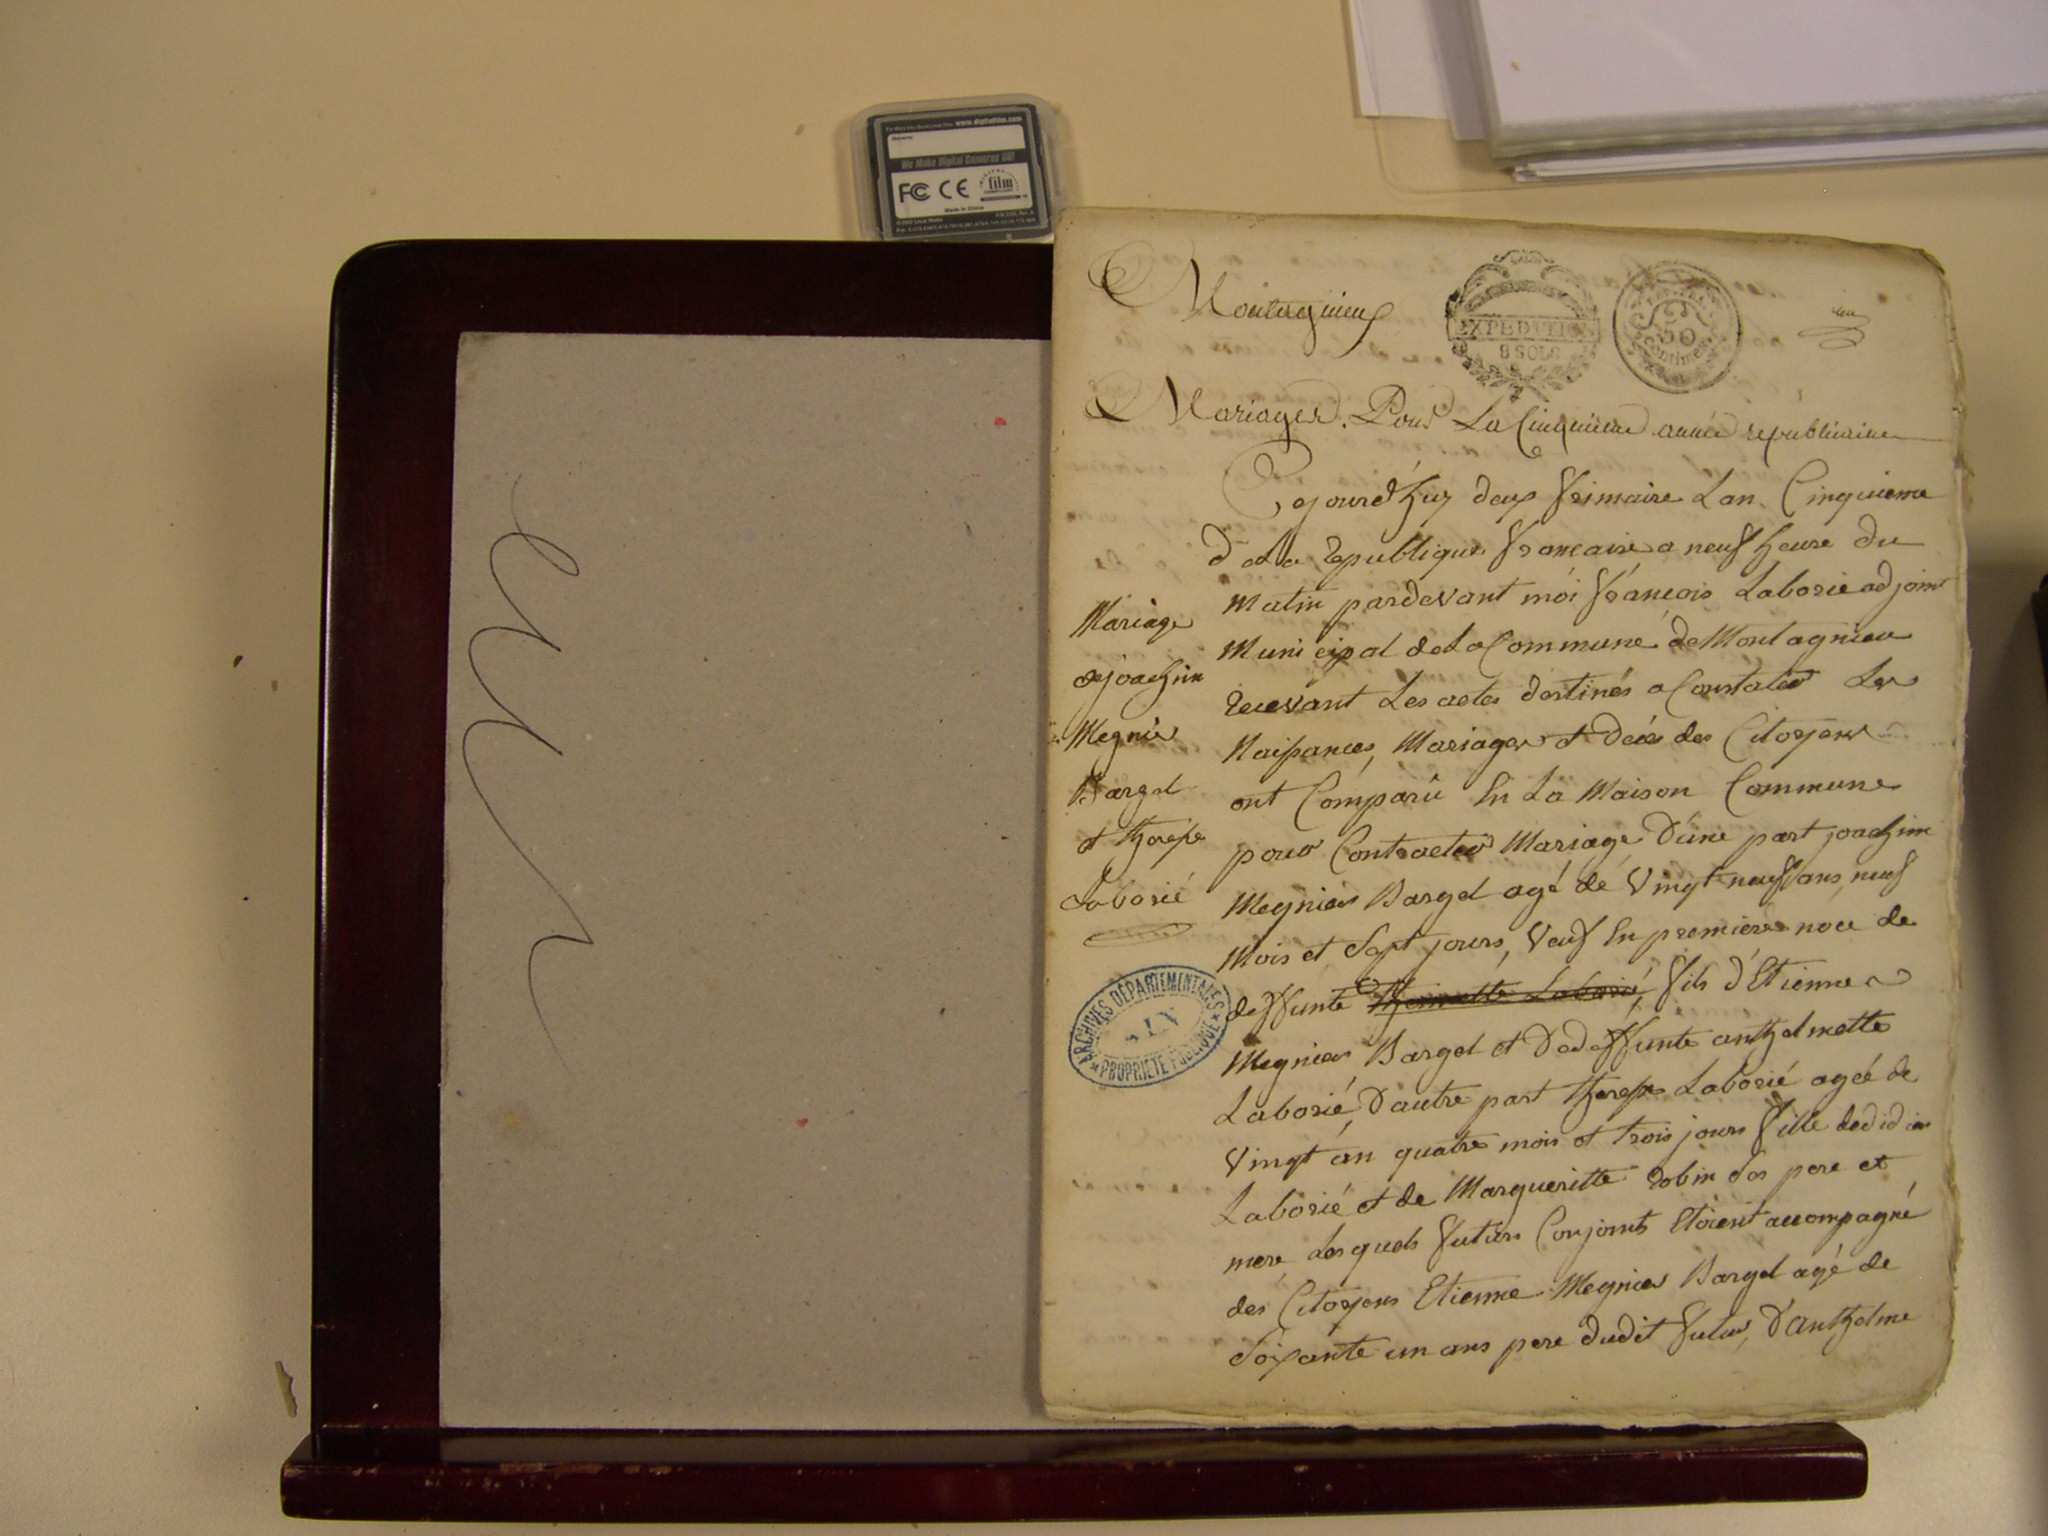 www.digitalfilm.com
We Make Digital Cameras Go!
FC CE film
Made in China
Montagnieux
EXPEDITION
8 SOLS
50
Centimes
Mariages. Pour La Cinquieme année républicaine
Cejourd'huy deux frimaire Lan Cinquieme
de La republique francaise a neuf heure du
matin pardevant moi françois Laborie adjoint
Municipal de La Commune de Montagnieu
recevant Les actes destinés a Constater Les
Naissances, Mariages et décès des Citoyens
ont Comparu En La Maison Commune
pour Contracter Mariage D'une part joachim
Megnier Bargel agé de Vingt neuf ans, neuf
Mois et Sept jours, Veuf En premiere noce de
deffunte Laborié, fils d'Etienne
Megnier Bargel et De deffunte anthelmette
Laborié, D'autre part therese Laborié agée de
Vingt an quatre mois et trois jours fille de didier
Laborié et de Margueritte robin Ses pere et
mere Lesquels futurs Conjoints Etoient accompagné
des Citoyens Etienne Megnier Bargel agé de
Soixante un ans pere dudit futur, D'anthelme
Mariage
de joachim
Megnier
Bargel
et therese
Laborié
ARCHIVES DÉPARTEMENTALES
AIN
PROPRIÉTÉ PUBLIQUE